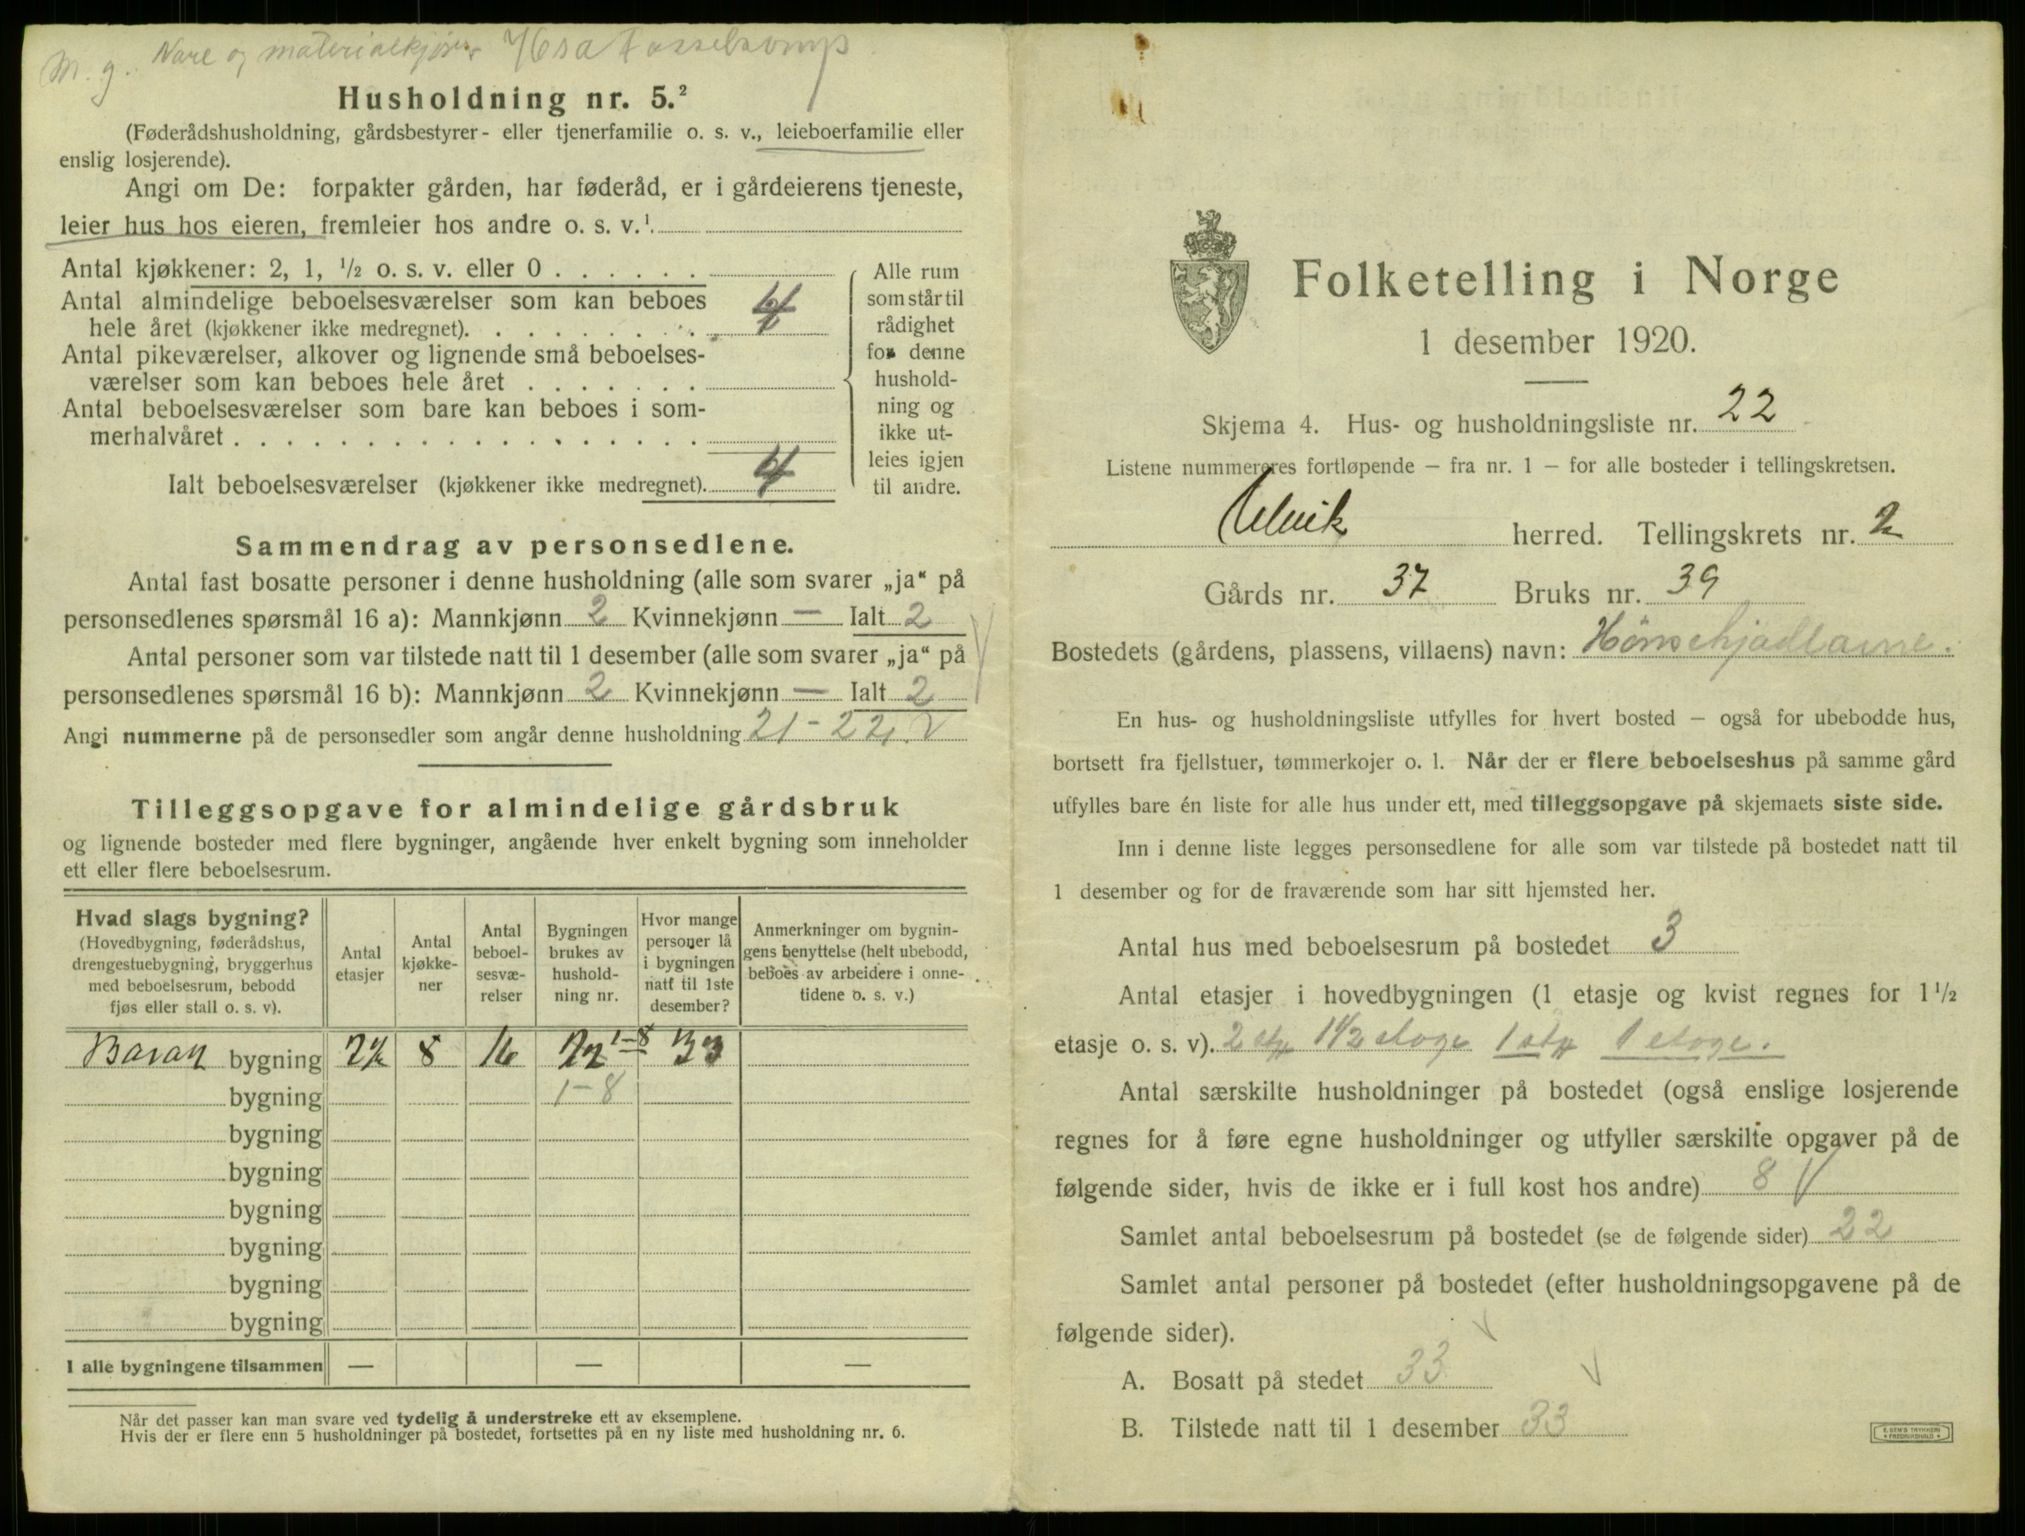 M. g. Nare og materialkjører
Husholdning nr. 5.²
(Føderådshusholdning, gårdsbestyrer- eller tjenerfamilie o. s. v., leieboerfamilie eller
enslig losjerende).
Angi om De: forpakter gården, har føderåd, er i gårdeierens tjeneste,
leier hus hos eieren, fremleier hos andre o. s. v.¹
Antal kjøkkener: 2, 1, ½ o. s. v. eller 0
Antal almindelige beboelsesværelser som kan beboes
hele året (kjøkkener ikke medregnet). 4
Antal pikeværelser, alkover og lignende små beboelses-
værelser som kan beboes hele året
Antal beboelsesværelser som bare kan beboes i som-
merhalvåret
Ialt beboelsesværelser (kjøkkener ikke medregnet). 4
Alle rum
som står til
rådighet
for denne
hushold-
ning og
ikke ut-
leies igjen
til andre.
Sammendrag av personsedlene.
Antal fast bosatte personer i denne husholdning (alle som svarer „ja“ på
personsedlenes spørsmål 16 a): Mannkjønn 2 Kvinnekjønn — Ialt 2
Antal personer som var tilstede natt til 1 desember (alle som svarer „ja“ på
personsedlenes spørsmål 16 b): Mannkjønn 2 Kvinnekjønn — Ialt 2
Angi nummerne på de personsedler som angår denne husholdning 21 - 22
Tilleggsopgave for almindelige gårdsbruk
og lignende bosteder med flere bygninger, angående hver enkelt bygning som inneholder
ett eller flere beboelsesrum.
Hvad slags bygning?
(Hovedbygning, føderådshus,
drengestuebygning, bryggerhus
med beboelsesrum, bebodd
fjøs eller stall o. s. v).
Antal
etasjer
Antal
kjøkke-
ner
Antal
beboel-
sesvæ-
relser
Bygningen
brukes av
hushold-
ning nr.
Hvor mange
personer lå
i bygningen
natt til 1ste
desember?
Anmerkninger om bygnin-
gens benyttelse (helt ubebodd,
beboes av arbeidere i onne-
tidene o. s. v.)
bygning 8 16 22 1-8 33
bygning 1-8
bygning
bygning
bygning
bygning
bygning
bygning
I alle bygningene tilsammen — — —
Når det passer kan man svare ved tydelig å understreke ett av eksemplene.
Hvis der er flere enn 5 husholdninger på bostedet, fortsettes på en ny liste med husholdning nr. 6.
Folketelling i Norge
1 desember 1920.
Skjema 4. Hus- og husholdningsliste nr. 22
Listene nummereres fortløpende – fra nr. 1 – for alle bosteder i tellingskretsen.
Ulvik herred. Tellingskrets nr. 2
Gårds nr. 37 Bruks nr. 39
Bostedets (gårdens, plassens, villaens) navn:
En hus- og husholdningsliste utfylles for hvert bosted – også for ubebodde hus,
bortsett fra fjellstuer, tømmerkojer o. l. Når der er flere beboelseshus på samme gård
utfylles bare én liste for alle hus under ett, med tilleggsopgave på skjemaets siste side.
Inn i denne liste legges personsedlene for alle som var tilstede på bostedet natt til
1 desember og for de fraværende som har sitt hjemsted her.
Antal hus med beboelsesrum på bostedet 3
Antal etasjer i hovedbygningen (1 etasje og kvist regnes for 1½
etasje o. s. v). 2 stk 1½ etage 1 stk 1 etage.
Antal særskilte husholdninger på bostedet (også enslige losjerende
regnes for å føre egne husholdninger og utfyller særskilte opgaver på de
følgende sider, hvis de ikke er i full kost hos andre) 8
Samlet antal beboelsesrum på bostedet (se de følgende sider) 22
Samlet antal personer på bostedet (efter husholdningsopgavene på de
følgende sider).
A. Bosatt på stedet 33
B. Tilstede natt til 1 desember 33
E. SEM'S TRYKKERI
FREDRIKSHALD